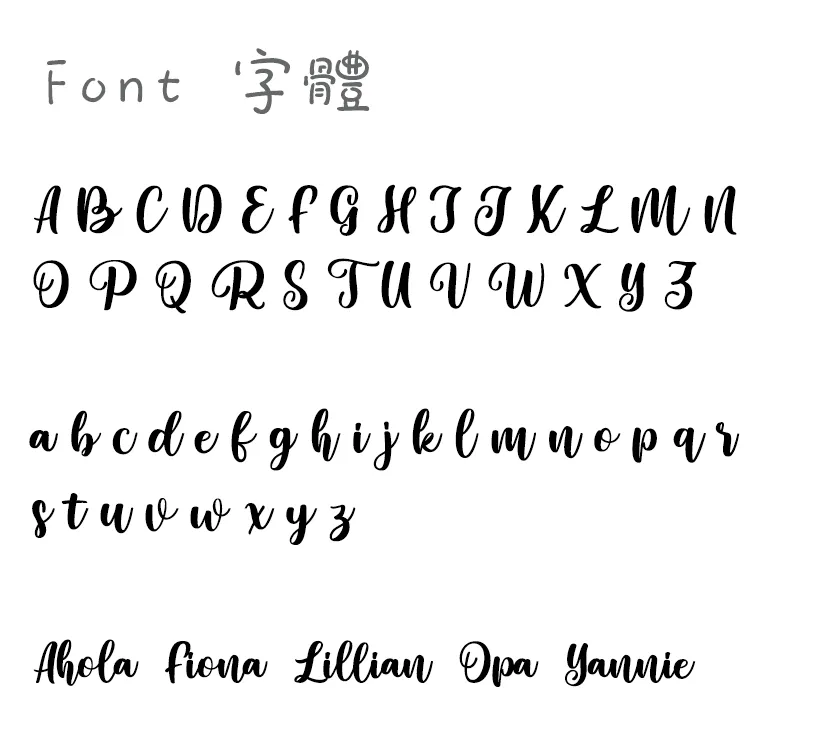 Font 字體
A B C D E F G H I J K L M N
O P Q R S T U V W X Y Z
a b c d e f g h i j k l m n o p q r
s t u v w x y z
Ahola Fiona Lillian Opa Yannie